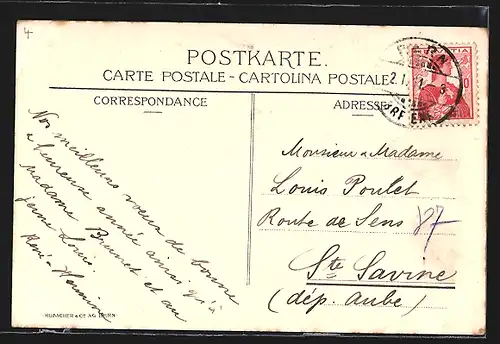 4
POSTKARTE.
CARTE POSTALE - CARTOLINA POSTALE
CORRESPONDANCE
ADRESSE
Nos meilleurs voeux de bonne
& heureuse année ainsi qu'à
madame Brunet et au
jeune Louis.
René
Monsieur & Madame
Louis Poulet
Route de Sens 87
Ste Savine
(dép. Aube)
BERN
HELVETIA
10